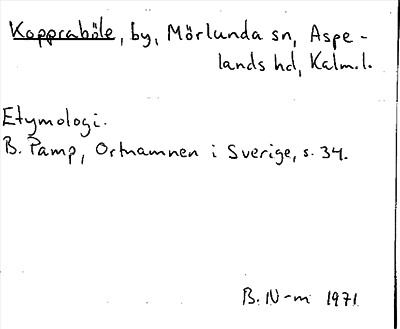 Koppraböle, by, Mörlunda sn, Aspe-
lands hd, Kalm.l.
Etymologi.
B. Pamp, Ortnamnen i Sverige, s. 34.
B. N-m 1971